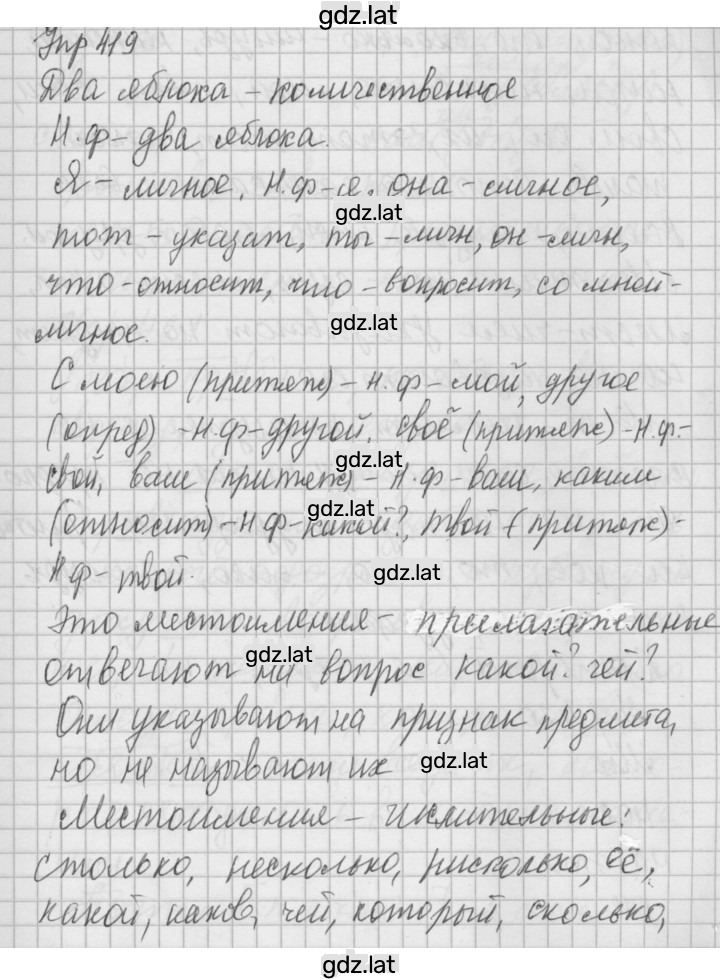 gdz.lat
Упр 419
Два яблока - количественное
Н.ф - два яблока.
Я - личное. Н.ф - я. она - личное,
gdz.lat
тот - указат, ты - личн, он - личн,
что - относит, что - вопросит, со мной -
gdz.lat
личное.
С моею (притяж) - Н.ф - мой, другое
(опред) - Н.ф - другой. своё (притяж) - Н.ф. -
gdz.lat
свой, ваш (притяж) - Н.ф - ваш, каким
(относит) - Н.ф - какой?, твой (притяж) -
gdz.lat
Н.ф - твой.
gdz.lat
Это местоимения - прилагательные
отвечают на вопрос какой? чей?
gdz.lat
Они указывают на признак предмета,
но не называют их
gdz.lat
Местоимения - числительные:
столько, несколько, нисколько, её,
gdz.lat
какой, каков, чей, который, сколько,
gdz.lat